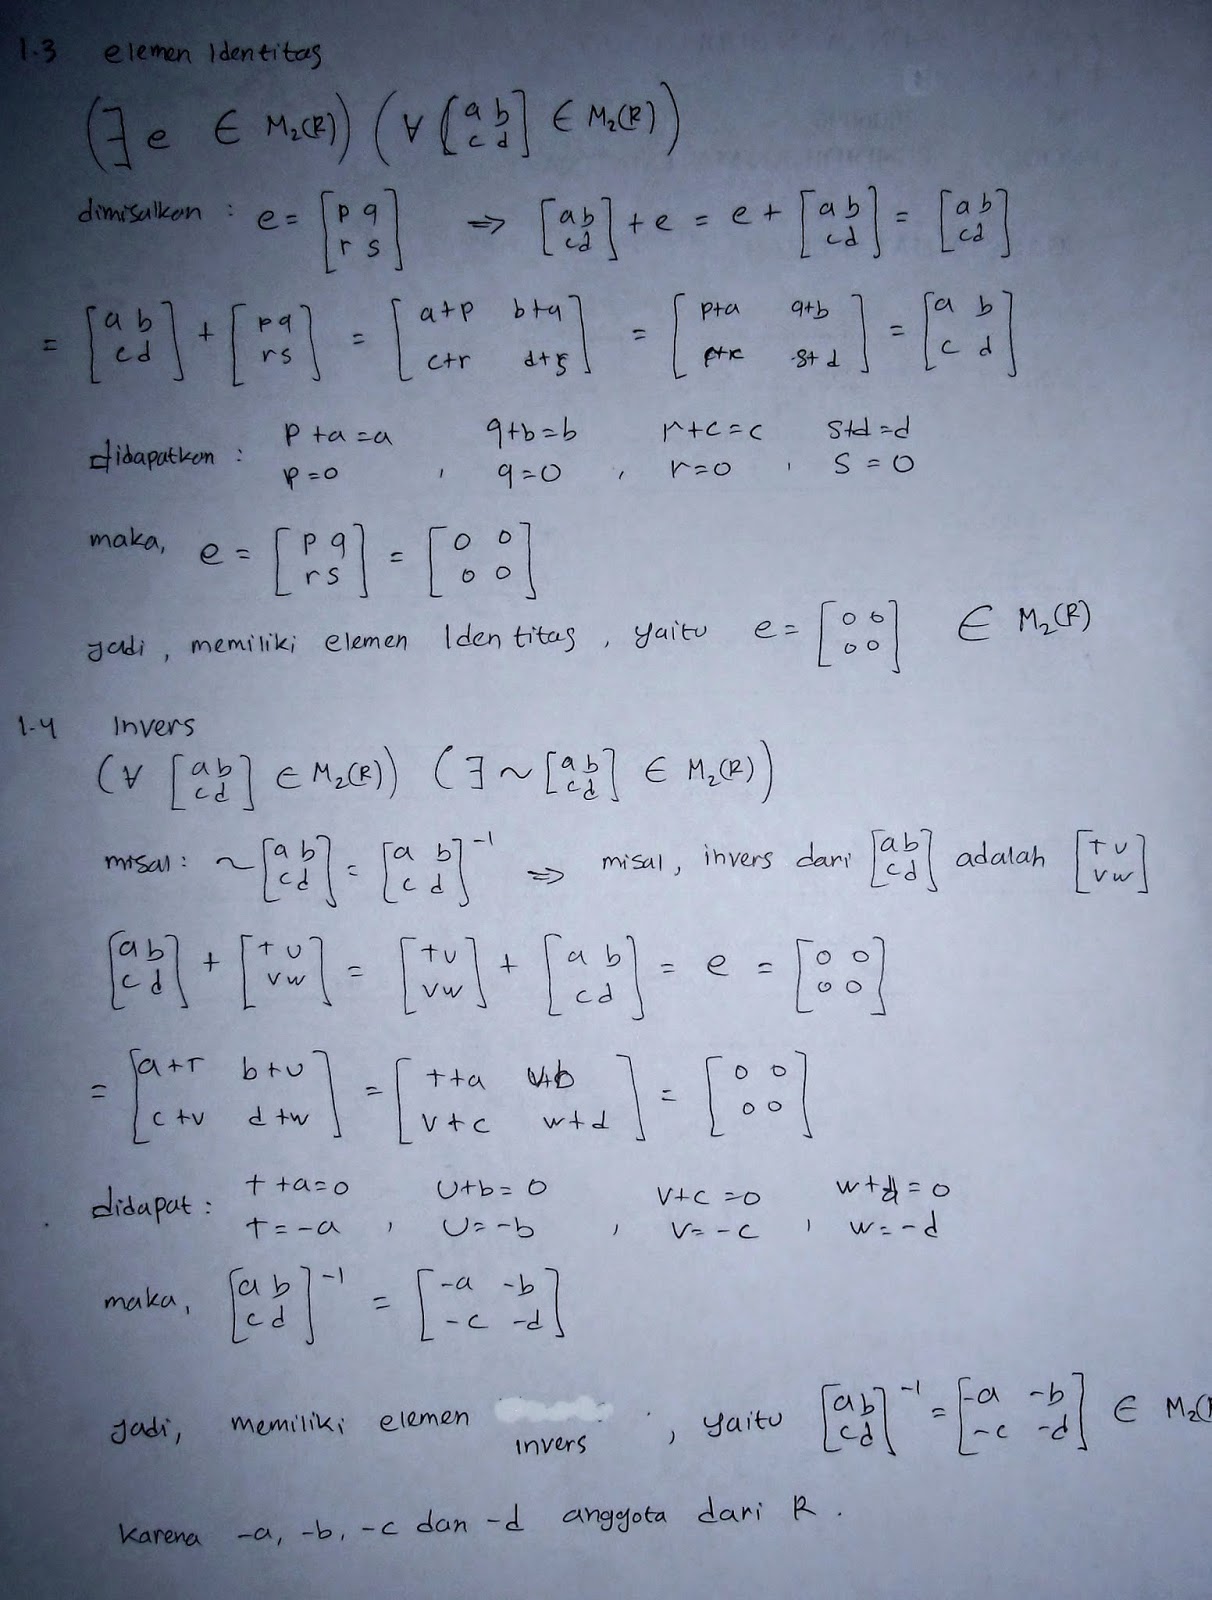 1.3 elemen Identitas
(∃ e ∈ M₂(R)) (∀ [a b; c d] ∈ M₂(R))
dimisalkan : e = [p q; r s] ⇒ [a b; c d] + e = e + [a b; c d] = [a b; c d]
= [a b; c d] + [p q; r s] = [a+p b+q; c+r d+s] = [p+a q+b; r+c s+d] = [a b; c d]
didapatkan : p+a=a q+b=b r+c=c s+d=d
p=0 , q=0 , r=0 , s=0
maka, e = [p q; r s] = [0 0; 0 0]
jadi, memiliki elemen Identitas, yaitu e = [0 0; 0 0] ∈ M₂(R)
1.4 Invers
(∀ [a b; c d] ∈ M₂(R)) (∃ ~ [a b; c d] ∈ M₂(R))
misal: ~[a b; c d] = [a b; c d]⁻¹ ⇒ misal, invers dari [a b; c d] adalah [t u; v w]
[a b; c d] + [t u; v w] = [t u; v w] + [a b; c d] = e = [0 0; 0 0]
= [a+t b+u; c+v d+w] = [t+a u+b; v+c w+d] = [0 0; 0 0]
didapat : t+a=0 u+b=0 v+c=0 w+d=0
t=-a , u=-b , v=-c , w=-d
maka, [a b; c d]⁻¹ = [-a -b; -c -d]
jadi, memiliki elemen invers ; yaitu [a b; c d]⁻¹ = [-a -b; -c -d] ∈ M₂(
karena -a, -b, -c dan -d anggota dari R.